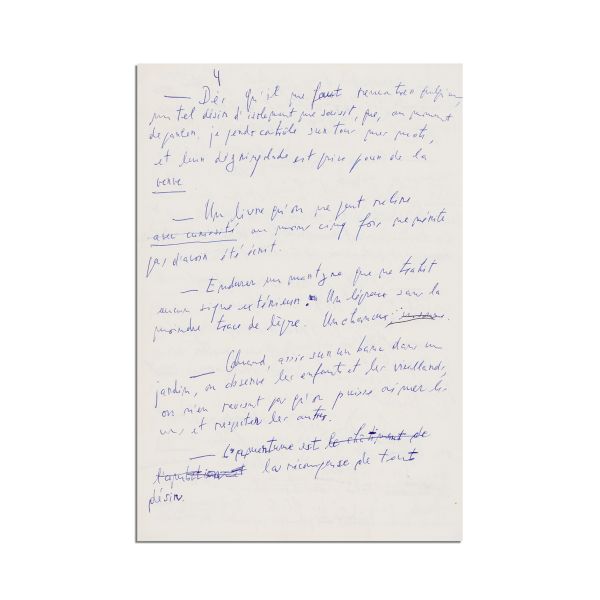 4
— Dès qu'il me faut rencontrer quelqu'un,
un tel désir d'isolement me saisit, que, au moment
de parler, je perds contrôle sur tous mes mots,
et leur dégringolade est prise pour de la
verve
— Un livre qu'on ne peut relire
avec curiosité au moins cinq fois ne mérite
pas d'avoir été écrit.
— Endurer un martyre que ne trahit
aucun signe extérieur. Un lépreux sans la
moindre trace de lèpre. Un chanceux
— Quand, assis sur un banc dans un
jardin, on observe les enfants et les vieillards,
on n'en revient pas qu'on puisse aimer les
uns, et respecter les autres.
— L'amertume est le châtiment de
la récompense de tout
désir.